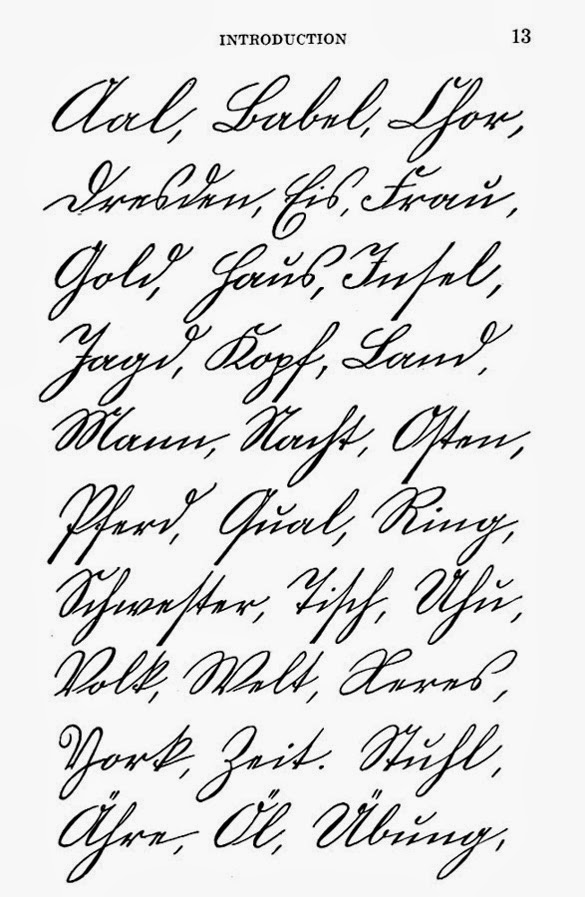 INTRODUCTION 13
Aal, Babel, Chor,
Dresden, Eis, Frau,
Gold, Haus, Insel,
Jagd, Kopf, Land,
Mann, Nacht, Osten,
Pferd, Qual, Ring,
Schwester, Tisch, Uhu,
Volk, Welt, Xeres,
York, Zeit. Stuhl,
Ähre, Öl, Übung,